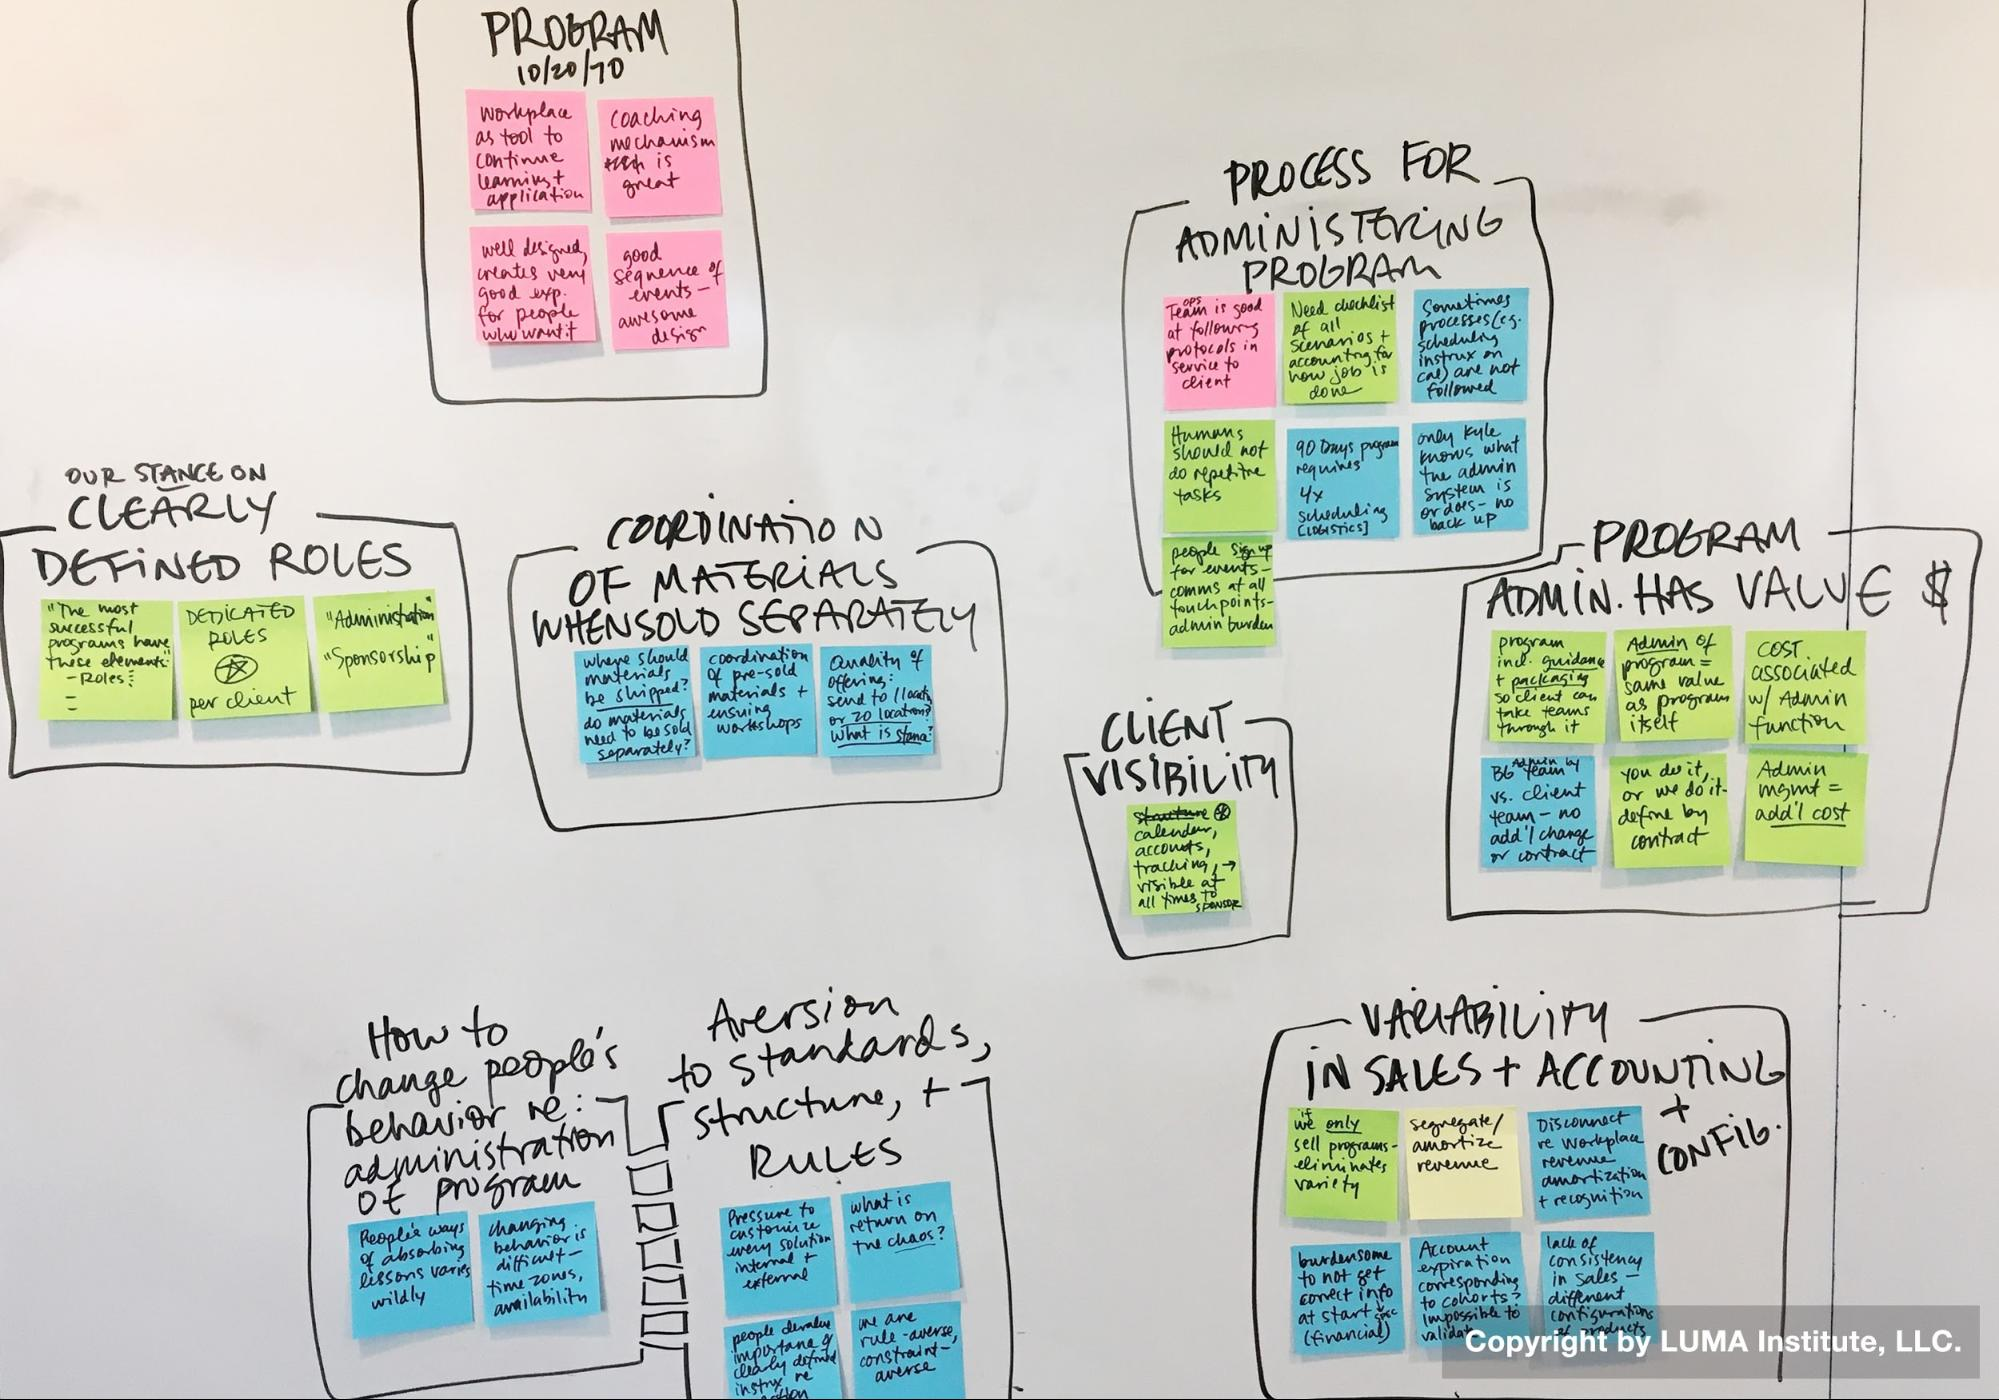 PROGRAM
10/20/70
workplace
as tool to
continue
learning +
application
coaching
mechanism
is
great
well designed,
creates very
good exp.
for people
who want it
good
sequence of
events –
awesome
design
PROCESS FOR
ADMINISTERING
PROGRAM
OPS
Team is good
at following
protocols in
service to
client
Need checklist
of all
scenarios +
accounting for
how job is
done
Sometimes
processes (e.g.
scheduling
instrux on
cal) are not
followed
Humans
should not
do repetitive
tasks
90 Days program
requires
4x
scheduling
[LOGISTICS]
only Kyle
knows what
the admin
system is
or does – no
back up
people sign up
for events –
comms at all
touchpoints –
admin burden
OUR STANCE ON
CLEARLY
DEFINED ROLES
"The most
successful
programs have
these elements:"
– Roles:
–
–
DEDICATED
ROLES
per client
"Administration"
"Sponsorship"
COORDINATION
OF MATERIALS
WHEN SOLD SEPARATELY
where should
materials
be shipped?
do materials
need to be sold
separately?
coordination
of pre-sold
materials +
ensuing
workshops
Quality of
offering:
send to 1 locatn
or 20 locations?
What is stance?
PROGRAM
ADMIN. HAS VALUE $
program
incl. guidance
+ packaging
so client can
take teams
through it
Admin of
program =
same value
as program
itself
COST
associated
w/ Admin
function
Admin by
BG team
vs. client
team – no
add'l change
or contract
you do it,
or we do it –
define by
contract
Admin
mgmt =
add'l cost
CLIENT
VISIBILITY
structure
calendar,
accounts,
tracking, →
visible at
all times to
SPONSOR
How to
change people's
behavior re:
administration
of program
People's ways
of absorbing
lessons varies
wildly
changing
behavior is
difficult –
time zones,
availability
Aversion
to standards,
structure, +
RULES
Pressure to
customize
every solution
internal +
external
what is
return on
the chaos?
people devalue
importance of
clearly defined
instrux re
we are
rule-averse,
constraint-
averse
VARIABILITY
IN SALES + ACCOUNTING
+
CONFIG.
if
we only
sell programs –
eliminates
variety
segregate/
amortize
revenue
Disconnect
re workplace
revenue
amortization
+ recognition
burdensome
to not get
correct info
at start
(financial)
Account
expiration
corresponding
to cohorts?
impossible to
validate
lack of
consistency
in sales –
different
configurations
of products
Copyright by LUMA Institute, LLC.